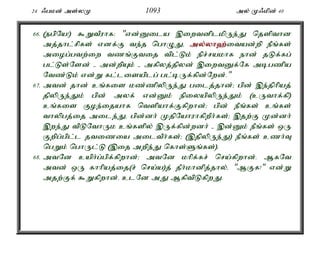 24 ஃபமன் அள்லமு 1093 அல் முஃமின் 40
66. (நபியே) கூறுவீராக: "என்னுடைய இறைவனிடமிருந்து தெளிவான
அத்தாட்சிகள் எனக்கு வந்த பொழுது, அல்லாஹ்வையன்றி நீங்கள்
அழைப்பவற்றை வணங்குவதை விட்டும் நிச்சயமாக நான் தடுக்கப்
பட்டுள்ளேன் - அன்றியும் - அகிலத்தின் இறைவனுக்கே அடிபணிய
வேண்டும் என்று கட்டளையிடப் பட்டிருக்கின்றேன்."
67. அவன் தான் உங்களை மண்ணிலிருந்து படைத்தான்; பின் இந்திரியத்
திலிருந்தும் பின் அலக் என்னும் நிலையிலிருந்தும் (உருவாக்கி)
உங்களை குழந்தையாக வெளியாக்குகிறான்; பின் நீங்கள் உங்கள்
வாலிபத்தை அடைந்து, பின்னர் முதியோராகிறீர்கள்; இதற்கு முன்னர்
இறந்து விடுவோரும் உங்களில் இருக்கின்றனர் - இன்னும் நீங்கள் ஒரு
குறிப்பிட்ட தவணையை அடைவீர்கள்; (இதிலிருந்து) நீங்கள் உணர்வு
பெறும் பொருட்டு (இதை அறிந்து கொள்ளுங்கள்).
68. அவனே உயிர்ப்பிக்கிறான்; அவனே மரிக்கச் செய்கிறான்; ஆகவே
அவன் ஒரு காரியத்தை(ச் செய்ய)த் தீர்மானித்தால், "ஆகுக!" என்று
அதற்குக் கூறுகிறான், உடனே அது ஆகிவிடுகிறது.